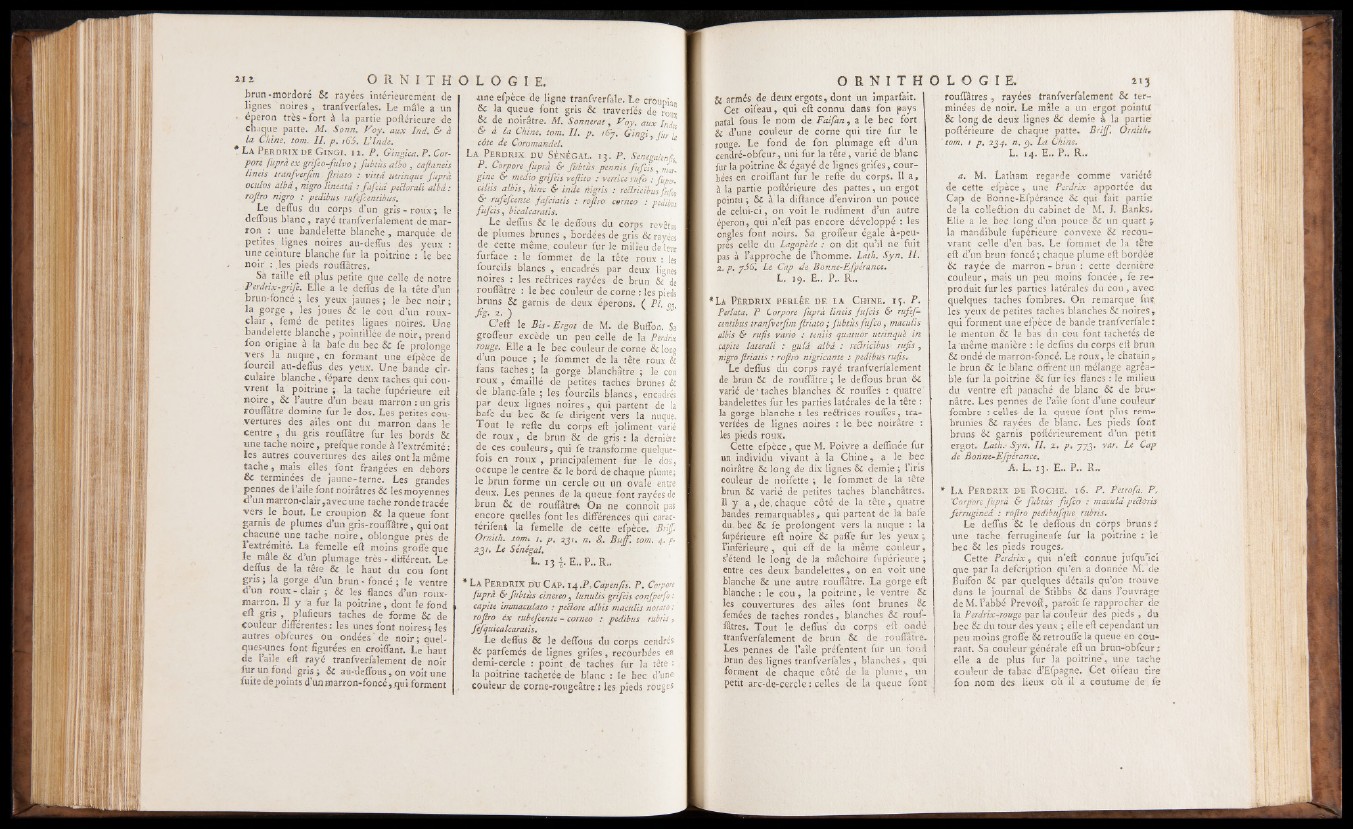 212 ORNITHOLOGIE.
brun-mordoré & rayées intérieurement de
lignes noires, tranſverſales. Le mâle a un
éperon très-fort à la partie poſtérieure de
chaque patte. M. Sonn. Voy. aux Ind. & à
la Chine, tom. II. p. 165. L'Inde.
* LA PERDRIX DE GINGI. 12. P. Gingica. P. Cor-
pore ſuprà ex griſeo-fulvo; ſubtùs albo, caſtaneis
lineis tranſverſim ſtriato : vittâ utrinque ſuprà
oculos albâ, nigro lineatâ : faſciâ pectorali albâ :
roſtro nigro : pedibus rufeſcentibus.
Le deſſus du corps d'un gris-roux; le
deſſous blanc, rayé tranſverſalement de mar-
ron : une bandelette blanche, marquée de
petites lignes noires au-deſſus des yeux :
une ceinture blanche ſur la poitrine : le bec
noir : les pieds rouſſâtres.
Sa taille eſt plus petite que celle de notre
Perdrix-griſe. Elle a le deſſus de la tête d'un
brun-foncé ; les yeux jaunes ; le bec noir ;
la gorge, les joues & le cou d'un roux-
clair, ſemé de petites lignes noires. Une
bandelette blanche, pointillée de noir, prend
ſon origine à la baſe du bec & ſe prolonge
vers la nuque, en formant une eſpèce de
ſourcil au-deſſus des yeux. Une bande cir-
culaire blanche, ſépare deux taches qui cou-
vrent la poitrine ; la tache ſupérieure eſt
noire, & l'autre d'un beau marron : un gris
rouſſâtre domine ſur le dos. Les petites cou-
vertures des aîles ont du marron dans le
centre, du gris rouſſâtre ſur les bords &
une tache noire, preſque ronde à l'extrémité :
les autres couvertures des aîles ont la même
tache, mais elles ſont frangées en dehors
& terminées de jaune-terne. Les grandes
pennes de l'aîle ſont noirâtres & les moyennes
d'un marron-clair, avec une tache ronde tracée
vers le bout. Le croupion & la queue ſont
garnis de plumes d'un gris-rouſſâtre, qui ont
chacune une tache noire, oblongue près de
l'extrémité. La femelle eſt moins groſſe que
le mâle & d'un plumage très-différent. Le
deſſus de la tête & le haut du cou ſont
gris ; la gorge d'un brun-foncé ; le ventre
d'un roux-clair ; & les flancs d'un roux-
marron. Il y a ſur la poitrine, dont le fond
eſt gris, pluſieurs taches de forme & de
couleur différentes : les unes ſont noires ; les
autres obſcures ou ondées de noir ; quel-
ques-unes ſont figurées en croiſſant. Le haut
de l'aîle eſt rayé tranſverſalement de noir
ſur un fond gris ; & au-deſſous, on voit une
ſuite de points d'un marron-foncé, qui forment
une eſpèce de ligne tranſverſale. Le croupion
& la queue ſont gris & traverſés de roux
& de noirâtre. M. Sonnerat, Voy. aux Indes
& à la Chine, tom. II. p. 167. Gingi, ſur la
côte de Coromandel.
LA PERDRIX DU SÉNÉGAL. 13. P. Senegalenſis.
P. Corpore ſuprà & ſubtùs pennis fuſcis, mar-
gine & medio griſeis veſtito : vertice rufo : ſuper-
ciliis albis, hinc & inde nigris : rectricibus fuſco
& rufeſcente faſciatis : roſtro corneo : pedibus
fuſcis, bicalcaratis.
Le deſſus & le deſſous du corps revêtus
de plumes brunes, bordées de gris & rayées
de cette même couleur ſur le milieu de leur
ſurface : le ſommet de la tête roux : les
ſourcils blancs, encadrés par deux lignes
noires : les rectrices rayées de brun & de
rouſſâtre : le bec couleur de corne : les pieds
bruns & garnis de deux éperons. ( Pl. 93,
fig. 2. )
C'eſt le Bis-Ergot de M. de Buffon. Sa
groſſeur excède un peu celle de la Perdrix
rouge. Elle a le bec couleur de corne & long
d'un pouce ; le ſommet de la tête roux &
ſans taches ; la gorge blanchâtre ; le cou
roux, émaillé de petites taches brunes &
de blanc-ſale ; les ſourcils blancs, encadrés
par deux lignes noires, qui partent de la
baſe du bec & ſe dirigent vers la nuque.
Tout le reſte du corps eſt joliment varié
de roux, de brun & de gris : la dernière
de ces couleurs, qui ſe transforme quelque-
fois en roux, principalement ſur le dos,
occupe le centre & le bord de chaque plume ;
le brun forme un cercle ou un ovale entre
deux. Les pennes de la queue ſont rayées de
brun & de rouſſâtre. On ne connoît pas
encore quelles ſont les différences qui carac-
tériſent la femelle de cette eſpèce. Briſſ.
Ornith. tom. 1. p. 231. n. 8. Buff. tom. 4. p.
231. Le Sénégal.
L. 13 ½. E.. P.. R..
* LA PERDRIX DU CAP. 14. P. Capenſis. P. Corpore
ſuprà & ſubtùs cinereo, lunulis griſeis conſperſo :
capite immaculato : pectore albis maculis notato :
roſtro ex rubeſcente-corneo : pedibus rubris,
ſeſquicalcaratis.
Le deſſus & le deſſous du corps cendrés
& parſemés de lignes griſes, recourbées en
demi-cercle : point de taches ſur la tête :
la poitrine tachetée de blanc : le bec d'une
couleur de corne-rougeâtre : les pieds rouges
ORNITHOLOGIE. 213
& armés de deux ergots, dont un imparfait.
Cet oiſeau, qui eſt connu dans ſon pays
natal ſous le nom de Faiſan, a le bec fort
& d'une couleur de corne qui tire ſur le
rouge. Le fond de ſon plumage eſt d'un
cendré-obſcur, uni ſur la tête, varié de blanc
ſur la poitrine & égayé de lignes griſes, cour-
bées en croiſſant ſur le reſte du corps. Il a,
à la partie poſtérieure des pattes, un ergot
pointu ; & à la diſtance d'environ un pouce
de celui-ci, on voit le rudiment d'un autre
éperon, qui n'eſt pas encore développé : les
ongles ſont noirs. Sa groſſeur égale à-peu-
près celle du Lagopède : on dit qu'il ne fuit
pas à l'approche de l'homme. Lath. Syn. II.
2. p. 756. Le Cap de Bonne-Eſpérance.
L. 19. E.. P.. R..
* LA PERDRIX PERLÉE DE LA CHINE. 15. P.
Perlata. P. Corpore ſuprà lineis fuſcis & rufeſ-
centibus tranſverſim ſtriato ; ſubtùs fuſco, maculis
albis & rufis vario : tæniis quatuor utrinquè in
capite laterali : gulâ albâ : rectricibus rufis,
nigro ſtriatis : roſtro nigricante : pedibus rufis.
Le deſſus du corps rayé tranſverſalement
de brun & de rouſſâtre ; le deſſous brun &
varié de taches blanches & rouſſes : quatre
bandelettes ſur les parties latérales de la tête :
la gorge blanche : les rectrices rouſſes, tra-
verſées de lignes noires : le bec noirâtre :
les pieds roux.
Cette eſpèce, que M. Poivre a deſſinée ſur
un individu vivant à la Chine, a le bec
noirâtre & long de dix lignes & demie ; l'iris
couleur de noiſette ; le ſommet de la tête
brun & varié de petites taches blanchâtres.
Il y a, de chaque côté de la tête, quatre
bandes remarquables, qui partent de la baſe
du bec & ſe prolongent vers la nuque : la
ſupérieure eſt noire & paſſe ſur les yeux ;
l'inférieure, qui eſt de la même couleur,
s'étend le long de la mâchoire ſupérieure ;
entre ces deux bandelettes, on en voit une
blanche & une autre rouſſâtre. La gorge eſt
blanche : le cou, la poitrine, le ventre &
les couvertures des aîles ſont brunes &
ſemées de taches rondes, blanches & rouſ-
ſâtres. Tout le deſſus du corps eſt ondé
tranſverſalement de brun & de rouſſâtre.
Les pennes de l'aîle préſentent ſur un fond
brun des lignes tranſverſales, blanches, qui
forment de chaque côté de la plume, un
petit arc-de-cercle : celles de la queue ſont
rouſſâtres, rayées tranſverſalement & ter-
minées de noir. Le mâle a un ergot pointu
& long de deux lignes & demie à la partie
poſtérieure de chaque patte. Briſſ. Ornith.
tom. 1 p. 234. n. 9. La Chine.
L. 14. E.. P.. R..
a. M. Latham regarde comme variété
de cette eſpèce, une Perdrix apportée du
Cap de Bonne-Eſpérance & qui fait partie
de la collection du cabinet de M. J. Banks.
Elle a le bec long d'un pouce & un quart ;
la mandibule ſupérieure convexe & recou-
vrant celle d'en bas. Le ſommet de la tête
eſt d'un brun foncé ; chaque plume eſt bordée
& rayée de marron-brun : cette dernière
couleur, mais un peu moins foncée, ſe re-
produit ſur les parties latérales du cou, avec
quelques taches ſombres. On remarque ſur
les yeux de petites taches blanches & noires,
qui forment une eſpèce de bande tranſverſale :
le menton & le bas du cou ſont tachetés de
la même manière : le deſſus du corps eſt brun
& ondé de marron-foncé. Le roux, le chatain,
le brun & le blanc offrent un mélange agréa-
ble ſur la poitrine & ſur les flancs : le milieu
du ventre eſt panaché de blanc & de bru-
nâtre. Les pennes de l'aîle ſont d'une couleur
ſombre : celles de la queue ſont plus rem-
brunies & rayées de blanc. Les pieds ſont
bruns & garnis poſtérieurement d'un petit
ergot. Lath. Syn. II. 2. p. 773. var. Le Cap
de Bonne-Eſpérance.
A. L. 13. E.. P.. R..
* LA PERDRIX DE ROCHE. 16. P. Petroſa. P.
Corpore ſuprà & ſubtùs fuſco : maculâ pectoris
ferrugineâ : roſtro pedibuſque rubris.
Le deſſus & le deſſous du corps bruns :
une tache ferrugineuſe ſur la poitrine : le
bec & les pieds rouges.
Cette Perdrix, qui n'eſt connue juſqu'ici
que par la deſcription qu'en a donnée M. de
Buffon & par quelques détails qu'on trouve
dans le journal de Stibbs & dans l'ouvrage
de M. l'abbé Prevoſt, paroît ſe rapprocher de
la Perdrix-rouge par la couleur des pieds, du
bec & du tour des yeux ; elle eſt cependant un
peu moins groſſe & retrouſſe la queue en cou-
rant. Sa couleur générale eſt un brun-obſcur :
elle a de plus ſur la poitrine, une tache
couleur de tabac d'Eſpagne. Cet oiſeau tire
ſon nom des lieux où il a coutume de ſe